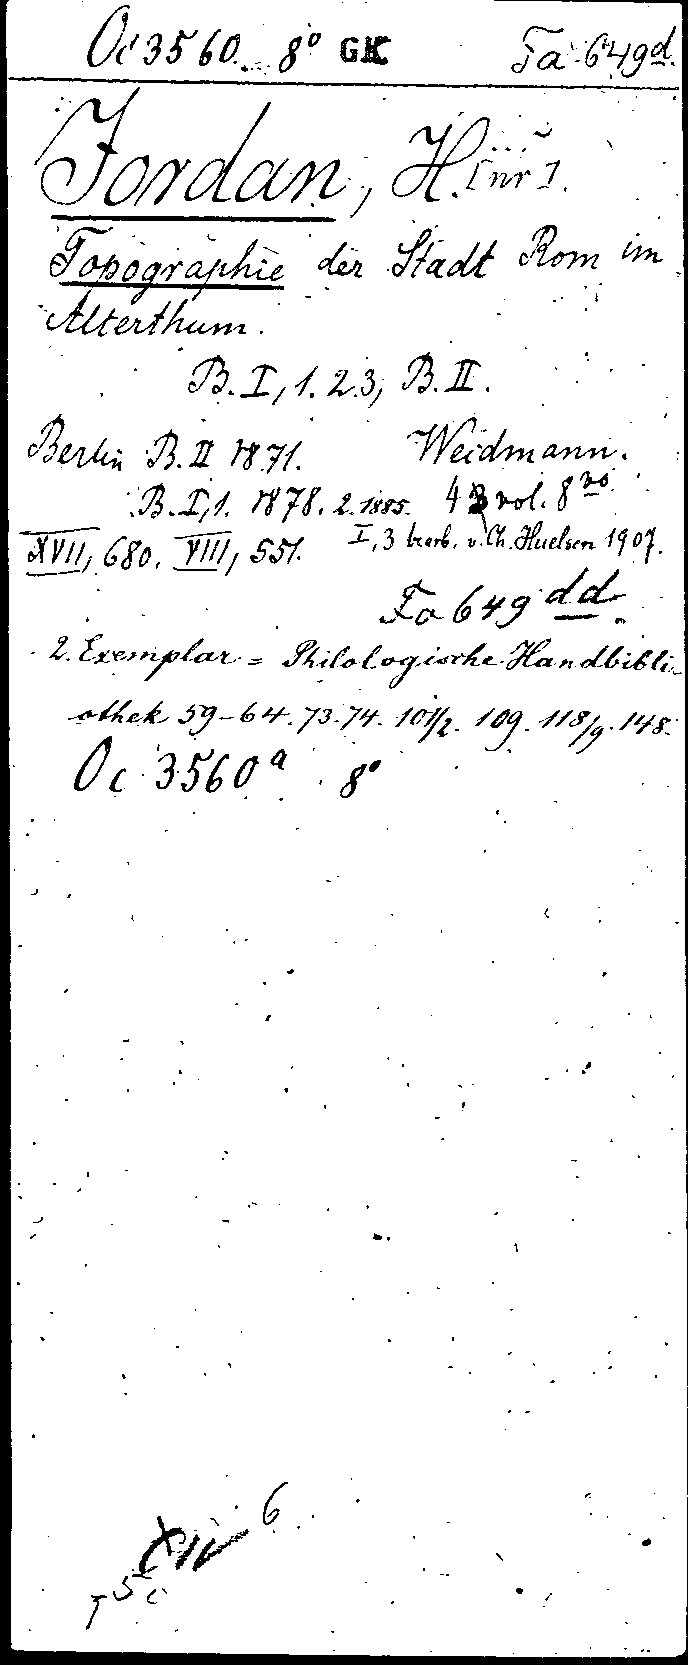 Oc 3560. 8° GK Fa 649d.
Jordan, H.[nr].
Topographie der Stadt Rom im
Alterthum.
B. I, 1. 2. 3, B. II.
Berlin B. II 1871. Weidmann.
B. I, 1. 1878. 2. 1885. 4 vol. 8vo.
XVII, 680. VIII, 551. I, 3 bearb. v. Ch. Huelsen 1907.
Fa 649 dd.
2. Exemplar = Philologische Handbibli-
othek 59-64. 73. 74. 101/2. 109. 118/9. 148.
Oc 3560 a 8°
6